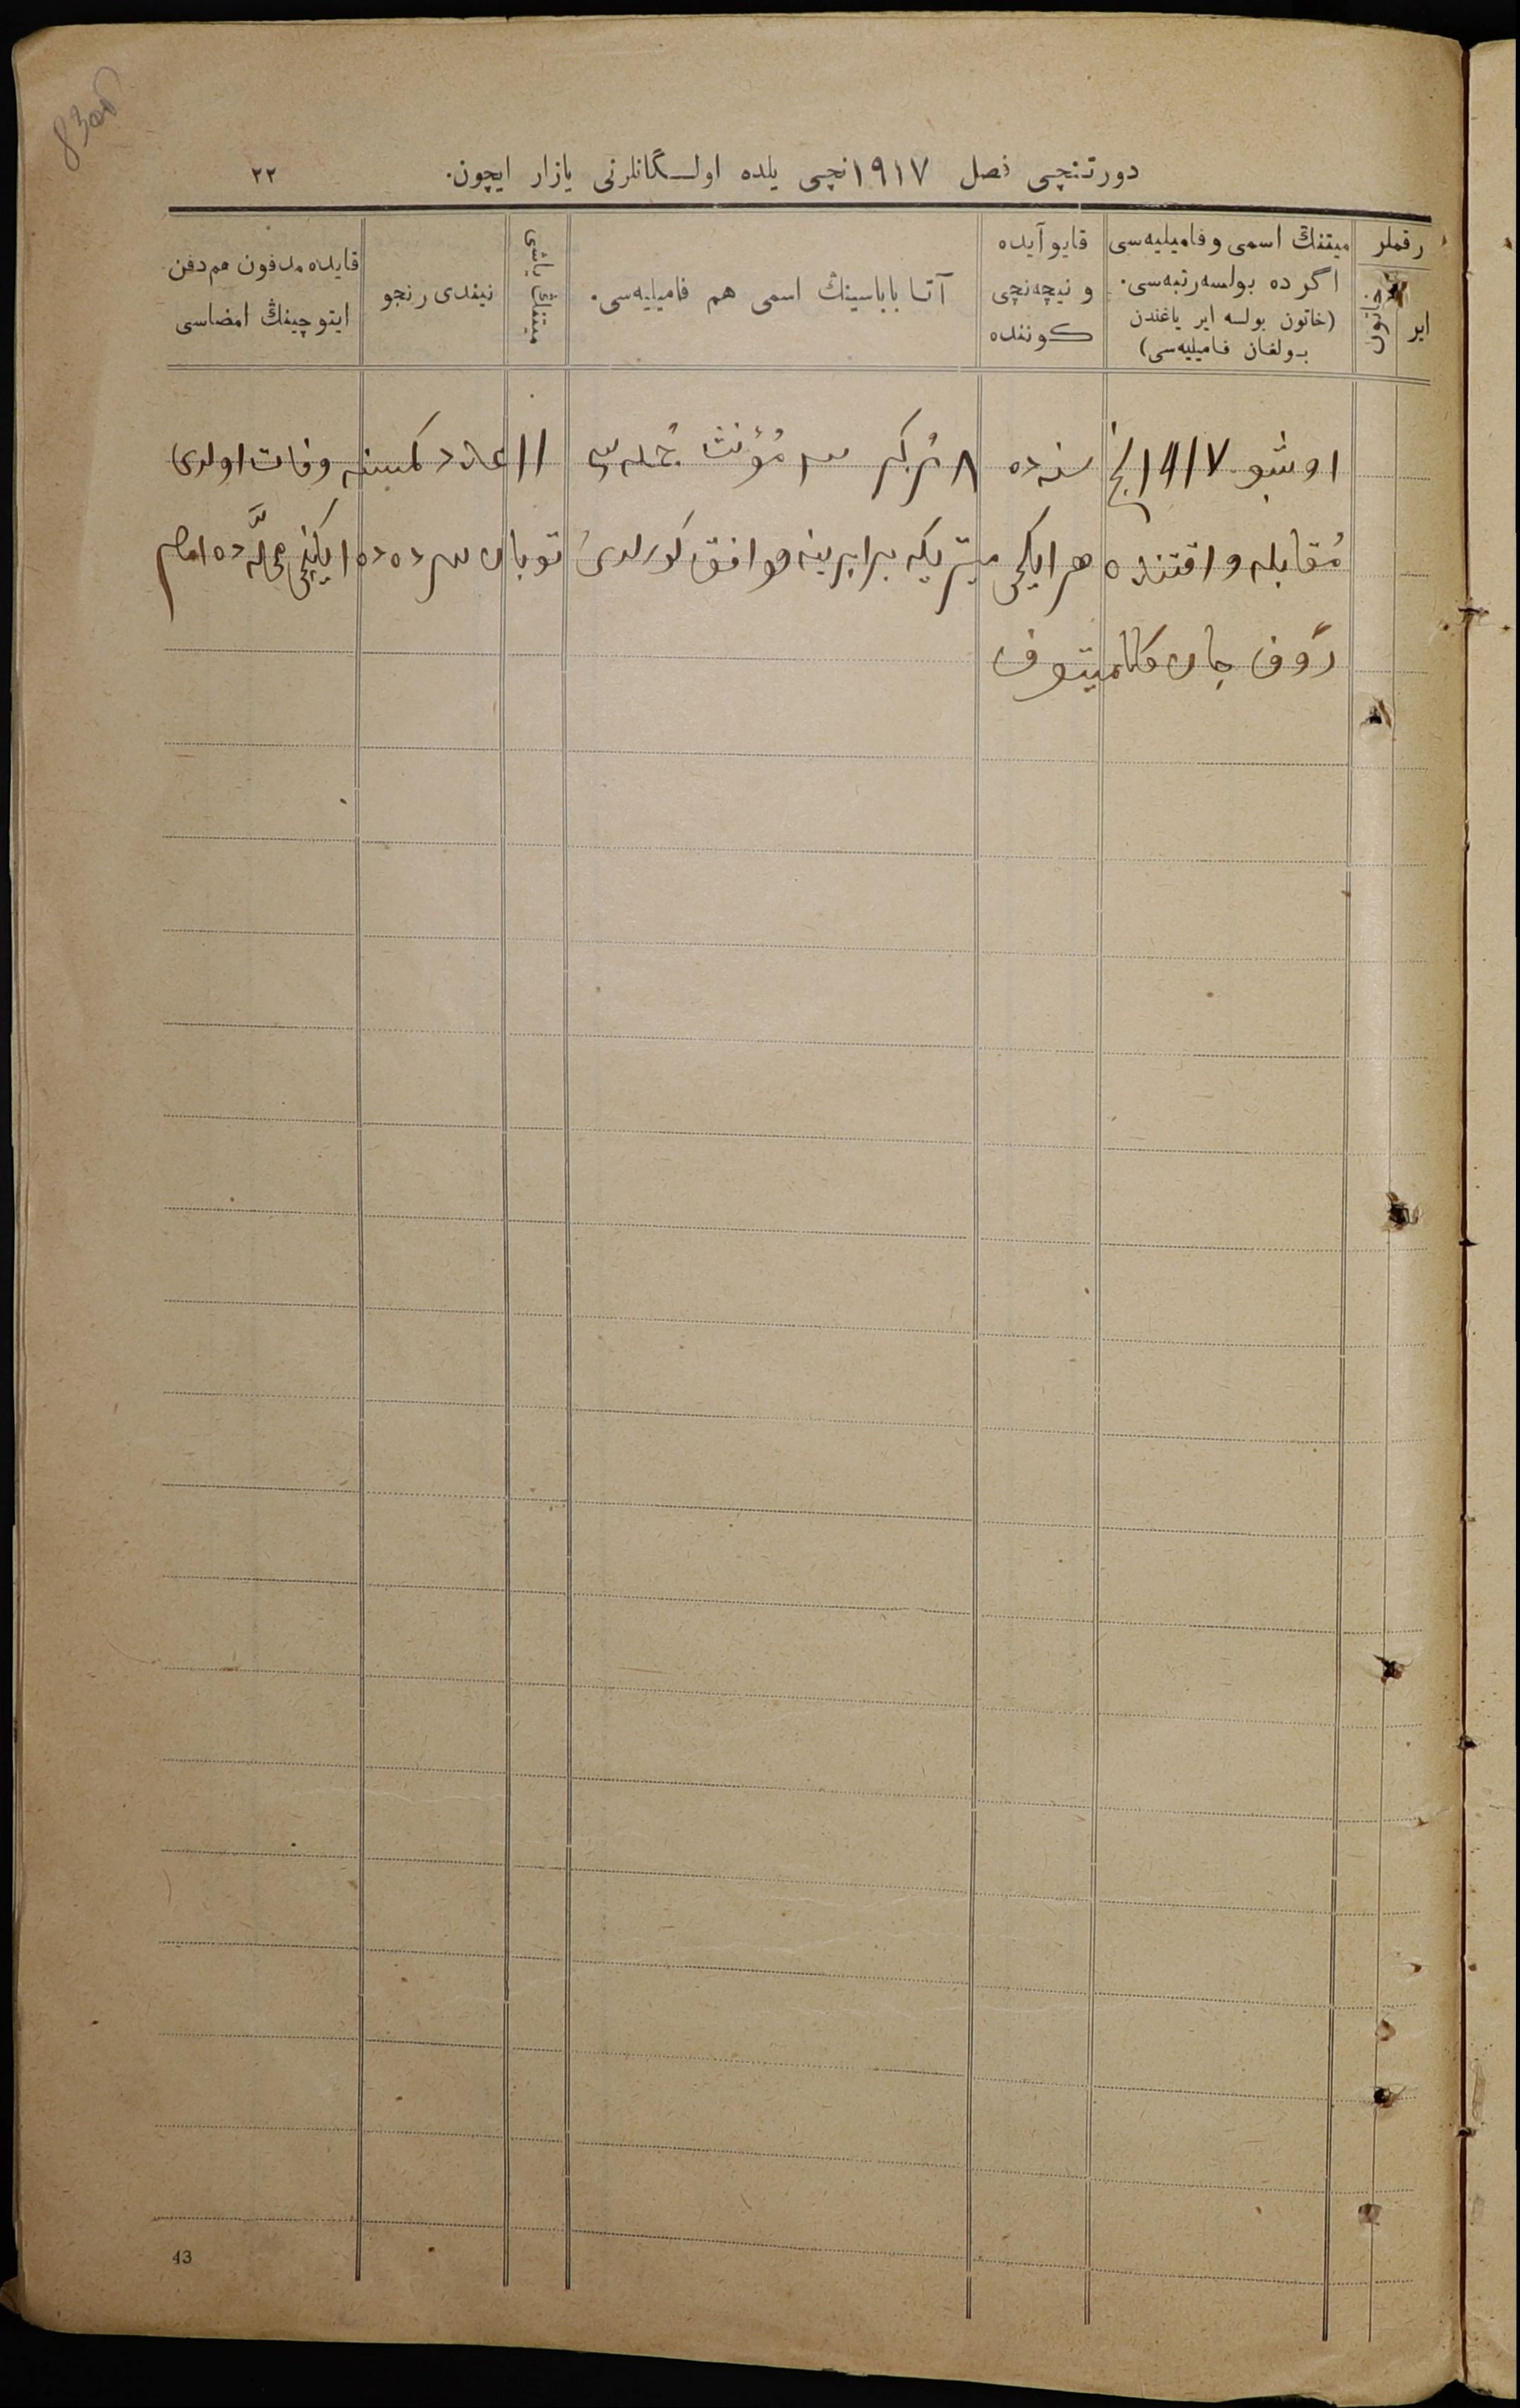 83об
دورتنچی فصل ۱۹۱۷نچی یلده اولـگانلرنی یازار ایچون.
۲۲
رقملر
ایر
خاتون
میتنڭ اسمی وفامیلیه‌سی
اگرده بولسه رتبه‌سی.
(خاتون بولسه ایر یاغندن
بـولغان فـامیلیه‌سی)
قایو آیده
و نیچه‌نچی
کـوننده
آتـا بابـاسینڭ اسمی هم فامیلیه‌سی.
میتنڭ یاشی
نیندی رنجو
قایده مدفون هم دفن
ایتوچینڭ امضاسی
اوشبو ۱۹۱۷نچی سنه‌ده ۸ مُذکر مُؤنث جُمله‌سی ۱۱ عدد کمسنه وفات اولدی
مُقابله واقتنده هر ایکی میتریکه برابرینه موافق کورلدی ایکنچی محلَّه‌ده امام
رؤف جان
13